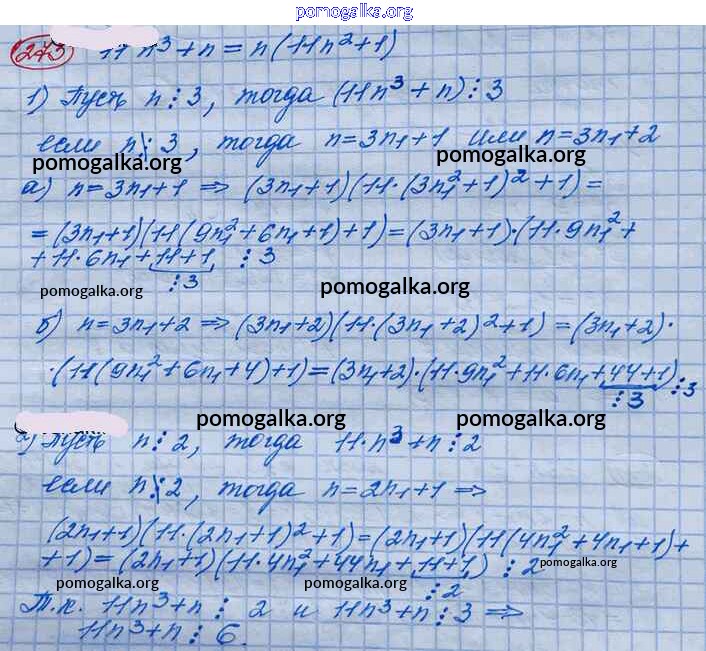 pomogalka.org
273 11n³+n = n(11n²+1)
1) Пусть n⋮3, тогда (11n³+n)⋮3
если n⋮̸3, тогда n=3n₁+1 или n=3n₁+2
pomogalka.org pomogalka.org
а) n=3n₁+1 ⇒ (3n₁+1)(11·(3n₁²+1)²+1)=
=(3n₁+1)(11(9n₁²+6n₁+1)+1)=(3n₁+1)·(11·9n₁²+
+11·6n₁+11+1 ⋮3
⋮3
pomogalka.org pomogalka.org
б) n=3n₁+2 ⇒ (3n₁+2)(11·(3n₁+2)²+1)=(3n₁+2)·
·(11(9n₁²+6n₁+4)+1)=(3n₁+2)·(11·9n₁²+11·6n₁+44+1)⋮3
⋮3
pomogalka.org pomogalka.org
Пусть n⋮2, тогда 11·n³+n⋮2
если n⋮̸2, тогда n=2n₁+1 ⇒
(2n₁+1)(11·(2n₁+1)²+1)=(2n₁+1)(11(4n₁²+4n₁+1)+
+1)=(2n₁+1)(11·4n₁²+44n₁+11+1) ⋮2 pomogalka.org
⋮2
pomogalka.org pomogalka.org
Т.к. 11n³+n⋮2 и 11n³+n⋮3 ⇒
11n³+n⋮6.